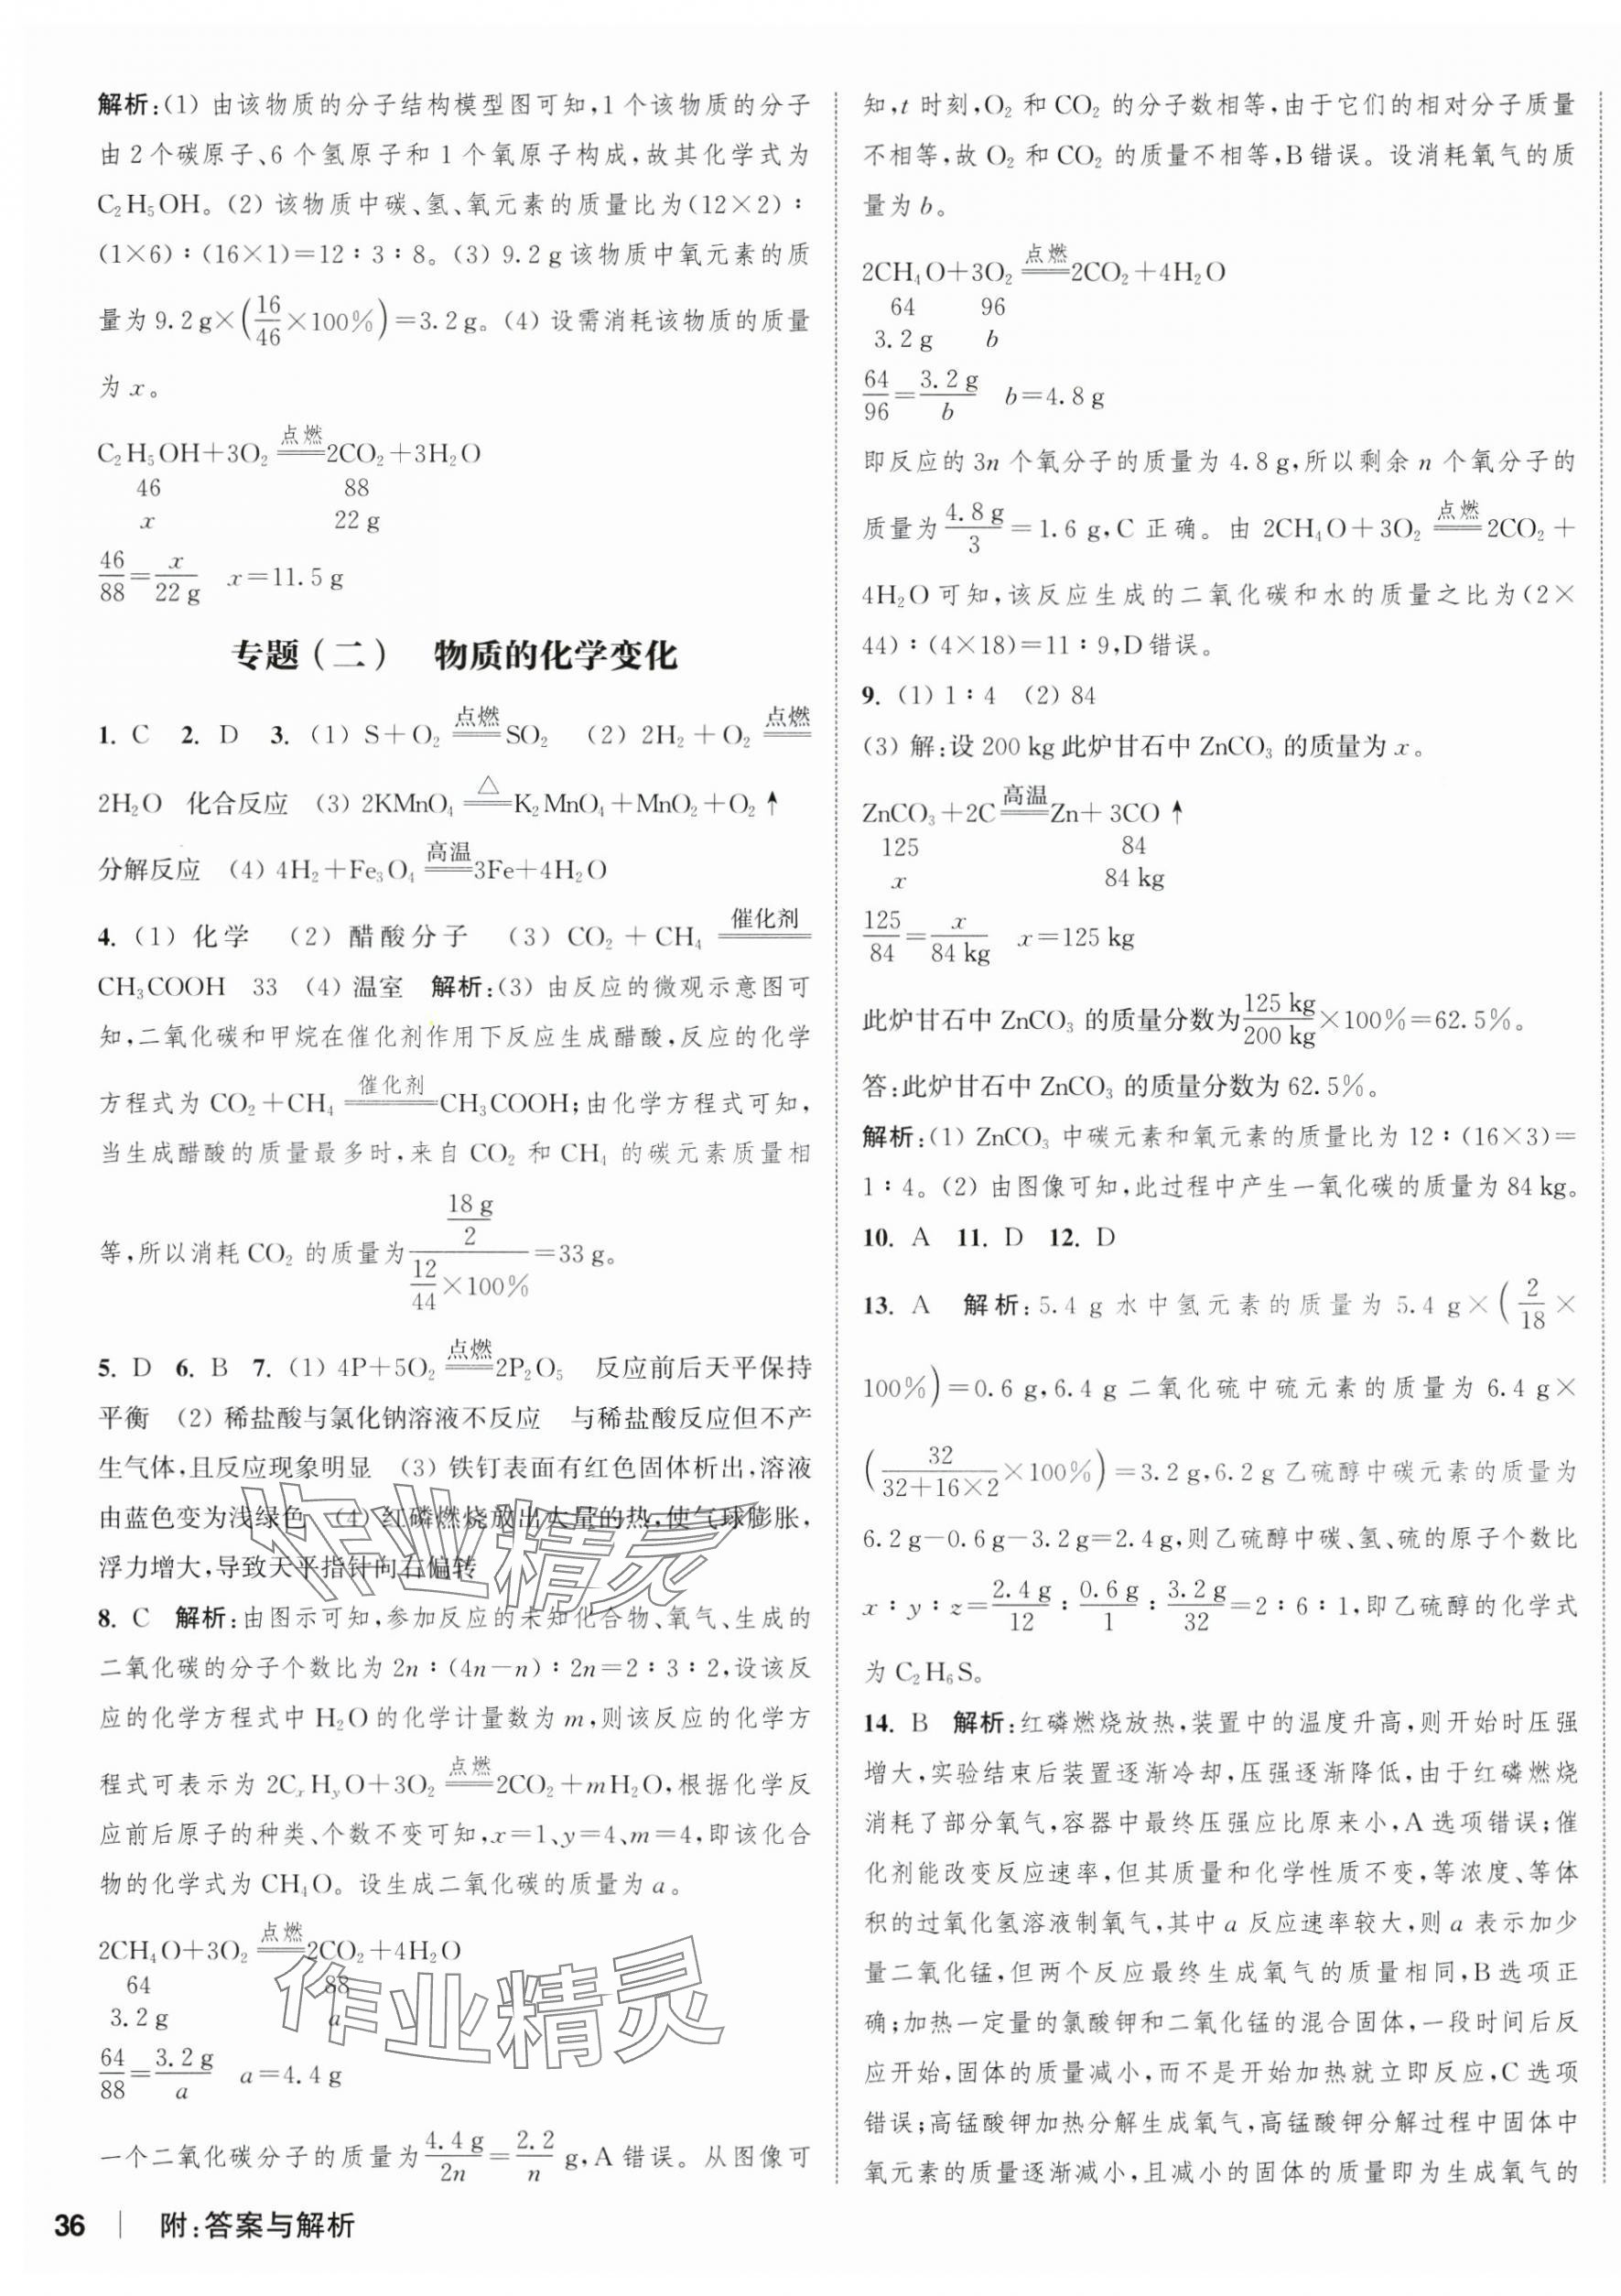 解析:(1) 由该物质的分子结构模型图可知,1 个该物质的分子
由 2 个碳原子、6 个氢原子和 1 个氧原子构成,故其化学式为
C₂H₅OH。(2) 该物质中碳、氢、氧元素的质量比为(12×2)∶
(1×6)∶(16×1)=12∶3∶8。(3) 9.2 g 该物质中氧元素的质
量为 9.2 g×(16/46×100%)=3.2 g。(4) 设需消耗该物质的质量
为 x。
C₂H₅OH+3O₂ 点燃══ 2CO₂+3H₂O
46 88
x 22 g
46/88=x/22 g x=11.5 g
专题(二) 物质的化学变化
1. C 2. D 3. (1) S+O₂ 点燃══ SO₂ (2) 2H₂+O₂ 点燃══
2H₂O 化合反应 (3) 2KMnO₄ △══ K₂MnO₄+MnO₂+O₂↑
分解反应 (4) 4H₂+Fe₃O₄ 高温══ 3Fe+4H₂O
4. (1) 化学 (2) 醋酸分子 (3) CO₂+CH₄ 催化剂══
CH₃COOH 33 (4) 温室 解析:(3) 由反应的微观示意图可
知,二氧化碳和甲烷在催化剂作用下反应生成醋酸,反应的化学
方程式为 CO₂+CH₄ 催化剂══ CH₃COOH;由化学方程式可知,
当生成醋酸的质量最多时,来自 CO₂ 和 CH₄ 的碳元素质量相
等,所以消耗 CO₂ 的质量为 (18 g/2)/(12/44×100%)=33 g。
5. D 6. B 7. (1) 4P+5O₂ 点燃══ 2P₂O₅ 反应前后天平保持
平衡 (2) 稀盐酸与氯化钠溶液不反应 与稀盐酸反应但不产
生气体,且反应现象明显 (3) 铁钉表面有红色固体析出,溶液
由蓝色变为浅绿色 (4) 红磷燃烧放出大量的热,使气球膨胀,
浮力增大,导致天平指针向右偏转
8. C 解析:由图示可知,参加反应的未知化合物、氧气、生成的
二氧化碳的分子个数比为 2n∶(4n−n)∶2n=2∶3∶2,设该反
应的化学方程式中 H₂O 的化学计量数为 m,则该反应的化学方
程式可表示为 2CₓHᵧO+3O₂ 点燃══ 2CO₂+mH₂O,根据化学反
应前后原子的种类、个数不变可知,x=1、y=4、m=4,即该化合
物的化学式为 CH₄O。设生成二氧化碳的质量为 a。
2CH₄O+3O₂ 点燃══ 2CO₂+4H₂O
64 88
3.2 g a
64/88=3.2 g/a a=4.4 g
一个二氧化碳分子的质量为 4.4 g/2n=2.2/n g,A 错误。从图像可
36 | 附:答案与解析
知,t 时刻,O₂ 和 CO₂ 的分子数相等,由于它们的相对分子质量
不相等,故 O₂ 和 CO₂ 的质量不相等,B 错误。设消耗氧气的质
量为 b。
2CH₄O+3O₂ 点燃══ 2CO₂+4H₂O
64 96
3.2 g b
64/96=3.2 g/b b=4.8 g
即反应的 3n 个氧分子的质量为 4.8 g,所以剩余 n 个氧分子的
质量为 4.8 g/3=1.6 g,C 正确。由 2CH₄O+3O₂ 点燃══ 2CO₂+
4H₂O 可知,该反应生成的二氧化碳和水的质量之比为(2×
44)∶(4×18)=11∶9,D 错误。
9. (1) 1∶4 (2) 84
(3) 解:设 200 kg 此炉甘石中 ZnCO₃ 的质量为 x。
ZnCO₃+2C 高温══ Zn+3CO↑
125 84
x 84 kg
125/84=x/84 kg x=125 kg
此炉甘石中 ZnCO₃ 的质量分数为 125 kg/200 kg×100%=62.5%。
答:此炉甘石中 ZnCO₃ 的质量分数为 62.5%。
解析:(1) ZnCO₃ 中碳元素和氧元素的质量比为 12∶(16×3)=
1∶4。(2) 由图像可知,此过程中产生一氧化碳的质量为 84 kg。
10. A 11. D 12. D
13. A 解析:5.4 g 水中氢元素的质量为 5.4 g×(2/18×
100%)=0.6 g,6.4 g 二氧化硫中硫元素的质量为 6.4 g×
(32/(32+16×2)×100%)=3.2 g,6.2 g 乙硫醇中碳元素的质量为
6.2 g−0.6 g−3.2 g=2.4 g,则乙硫醇中碳、氢、硫的原子个数比
x∶y∶z=2.4 g/12∶0.6 g/1∶3.2 g/32=2∶6∶1,即乙硫醇的化学式
为 C₂H₆S。
14. B 解析:红磷燃烧放热,装置中的温度升高,则开始时压强
增大,实验结束后装置逐渐冷却,压强逐渐降低,由于红磷燃烧
消耗了部分氧气,容器中最终压强应比原来小,A 选项错误;催
化剂能改变反应速率,但其质量和化学性质不变,等浓度、等体
积的过氧化氢溶液制氧气,其中 a 反应速率较大,则 a 表示加少
量二氧化锰,但两个反应最终生成氧气的质量相同,B 选项正
确;加热一定量的氯酸钾和二氧化锰的混合固体,一段时间后反
应开始,固体的质量减小,而不是开始加热就立即反应,C 选项
错误;高锰酸钾加热分解生成氧气,高锰酸钾分解过程中固体中
氧元素的质量逐渐减小,且减小的固体的质量即为生成氧气的
作业精灵
作业精灵